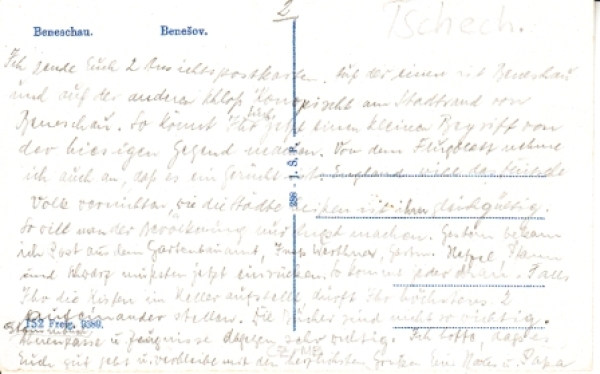 2
Tschech.
Beneschau. Benešov.
Ich sende Euch 2 Ansichtspostkarten. Auf der einen ist Beneschau
und auf der anderen Schloß Konopischt am Stadtrand von
Beneschau. So könnt Ihr Euch jetzt einen kleinen Begriff von
der hiesigen Gegend machen. Von dem Flugblatt nehme
ich auch an, daß es ein Gerücht ist. England will das deutsche
Volk vernichten wie die Städte heißen ist ihm gleichgültig.
So will man der Bevölkerung nur Angst machen. Gestern bekam
ich Post aus dem Gartenbauamt, Insp. Werthner, Gartm.
und mußten jetzt einrücken. So kommt jeder dran. Falls
Ihr die Kisten im Keller aufstellt, dürft Ihr höchstens 2
aufeinander stellen. Die Bücher sind nicht so wichtig.
Ahnenpässe u. Zeugnisse dagegen sehr wichtig. Ich hoffe, daß es
Euch gut geht u. verbleibe mit den herzlichsten Grüßen Eur u. Papa
288 - J. S. P.
152 Freig. 9389.